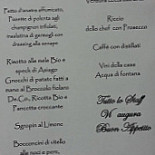 Petto d'anatra affumicato,
Fassette di polenta agli
champignon trifolati,
insalatina di germogli con
dressing alla senape
Risotto alla mela Bio e
speck di Asiago
Gnocchi di patate fatti a
mano al Broccolo fiolaro
De.Co, Ricotta Bio e
Pancetta croccante
Sgropin al Limone
Bocconcini di vitello
Riccio
dello chef con Prosecco
Caffè con distillati
Vini della casa
Acqua di fontana
Tutto lo Staff
Vi augura
Buon Appetito